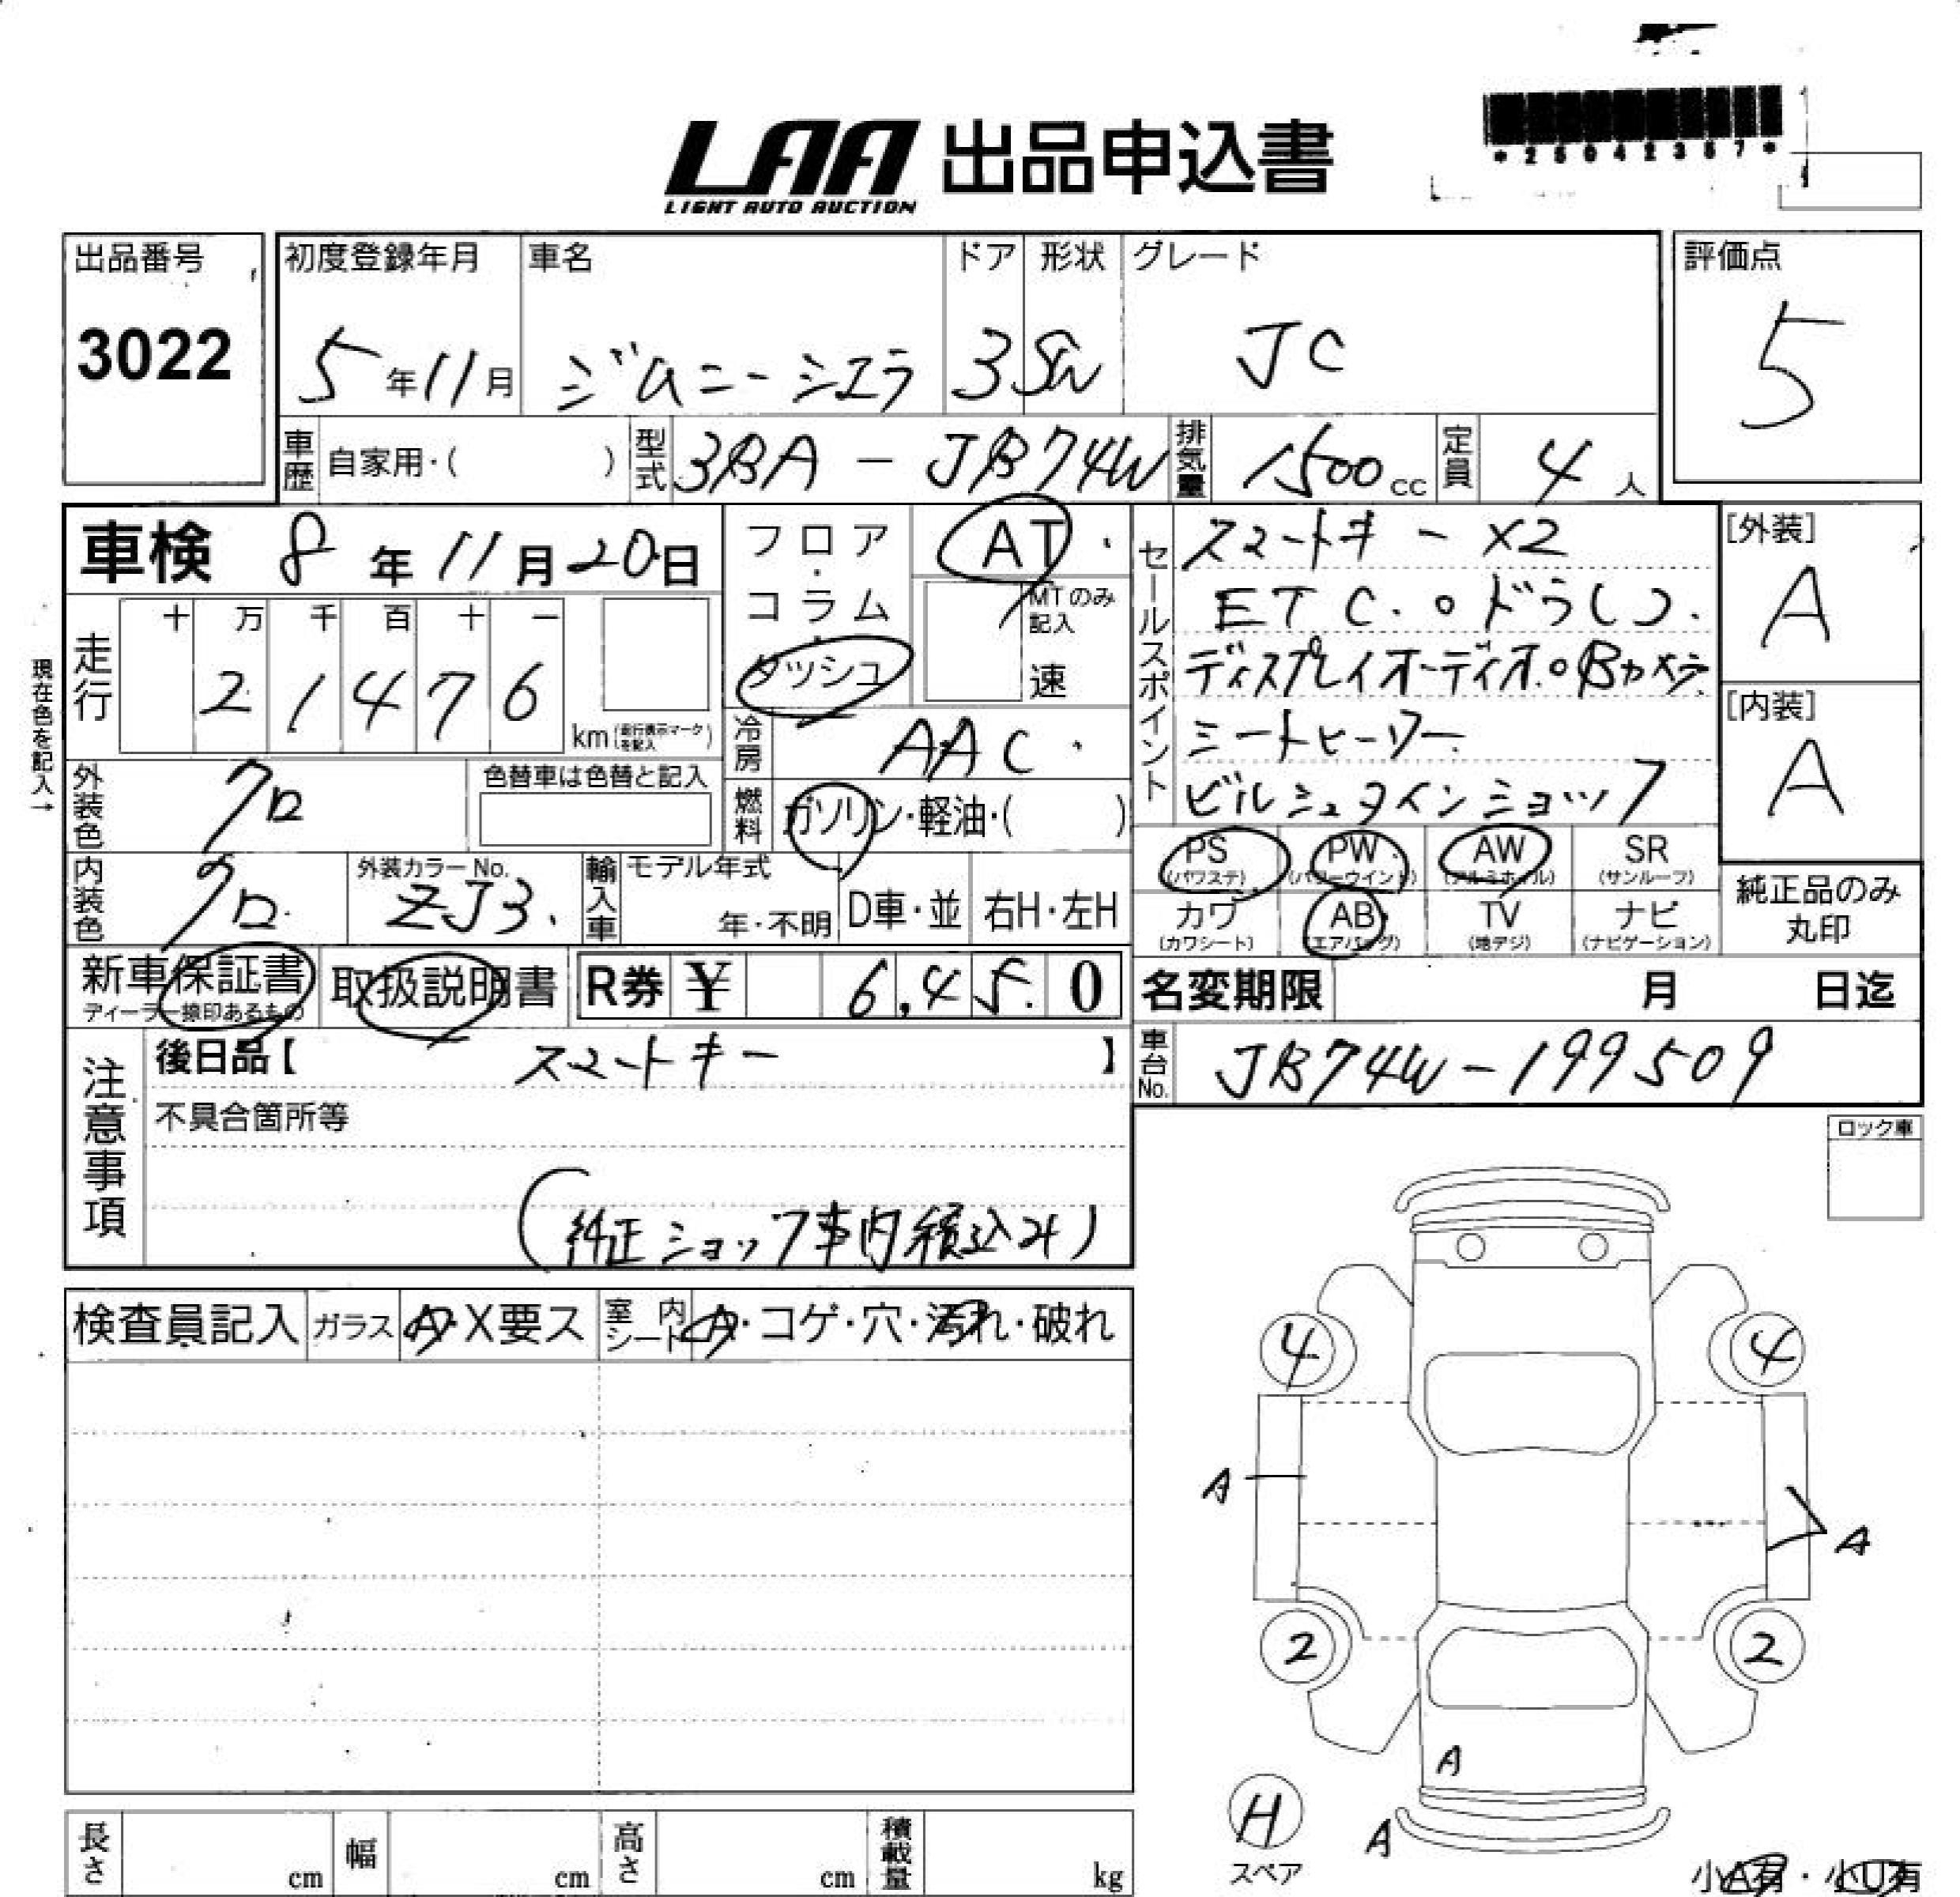 *25042367*
LAA 出品申込書
LIGHT AUTO AUCTION
出品番号
3022
初度登録年月
5年11月
車名
ジムニーシエラ
ドア
3
形状
SW
グレード
JC
評価点
5
車歴
自家用・( )
型式
3BA - JB74W
排気量
1500cc
定員
4人
車検 8年11月20日
フロア・コラム・ダッシュ
AT
MTのみ記入
速
セールスポイント
スマートキー ×2
ETC.○ドラレコ.
ディスプレイオーディオ.○Bカメラ
シートヒーター
ビルシュタインショック
[外装]
A
[内装]
A
現在色を記入→
走行
十 万 千 百 十 一
2 1 4 7 6
km(走行表示マークを記入)
冷房
AAC.
外装色
クロ
色替車は色替と記入
燃料
ガソリン・軽油・( )
PS
(パワステ)
PW
(パワーウインド)
AW
(アルミホイル)
SR
(サンルーフ)
カワ
(カワシート)
AB
(エアバッグ)
TV
(地デジ)
ナビ
(ナビゲーション)
純正品のみ
丸印
内装色
クロ.
外装カラーNo.
ZJ3.
輸入車
モデル年式
年・不明
D車・並
右H・左H
新車保証書
ディーラー捺印あるもの
取扱説明書
R券 ¥ 6,450
名変期限 月 日迄
注意事項
後日品【 スマートキー 】
不具合箇所等
(純正ショック車内積込み)
車台No.
JB74W-199509
ロック車
検査員記入
ガラス
A・X要ス
室内シート
A・コゲ・穴・汚れ・破れ
4
4
A
A
2
2
A
A
H
スペア
小A有・小U有
長さ cm
幅 cm
高さ cm
積載量 kg